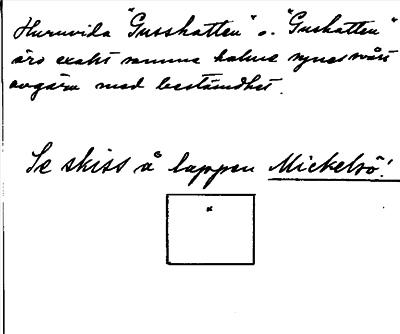 Huruvida "Gusskatten" o. "Guskatten"
äro exakt samma holme synes svårt
avgöra med bestämdhet.
Se skiss å lappen Mickelsö!